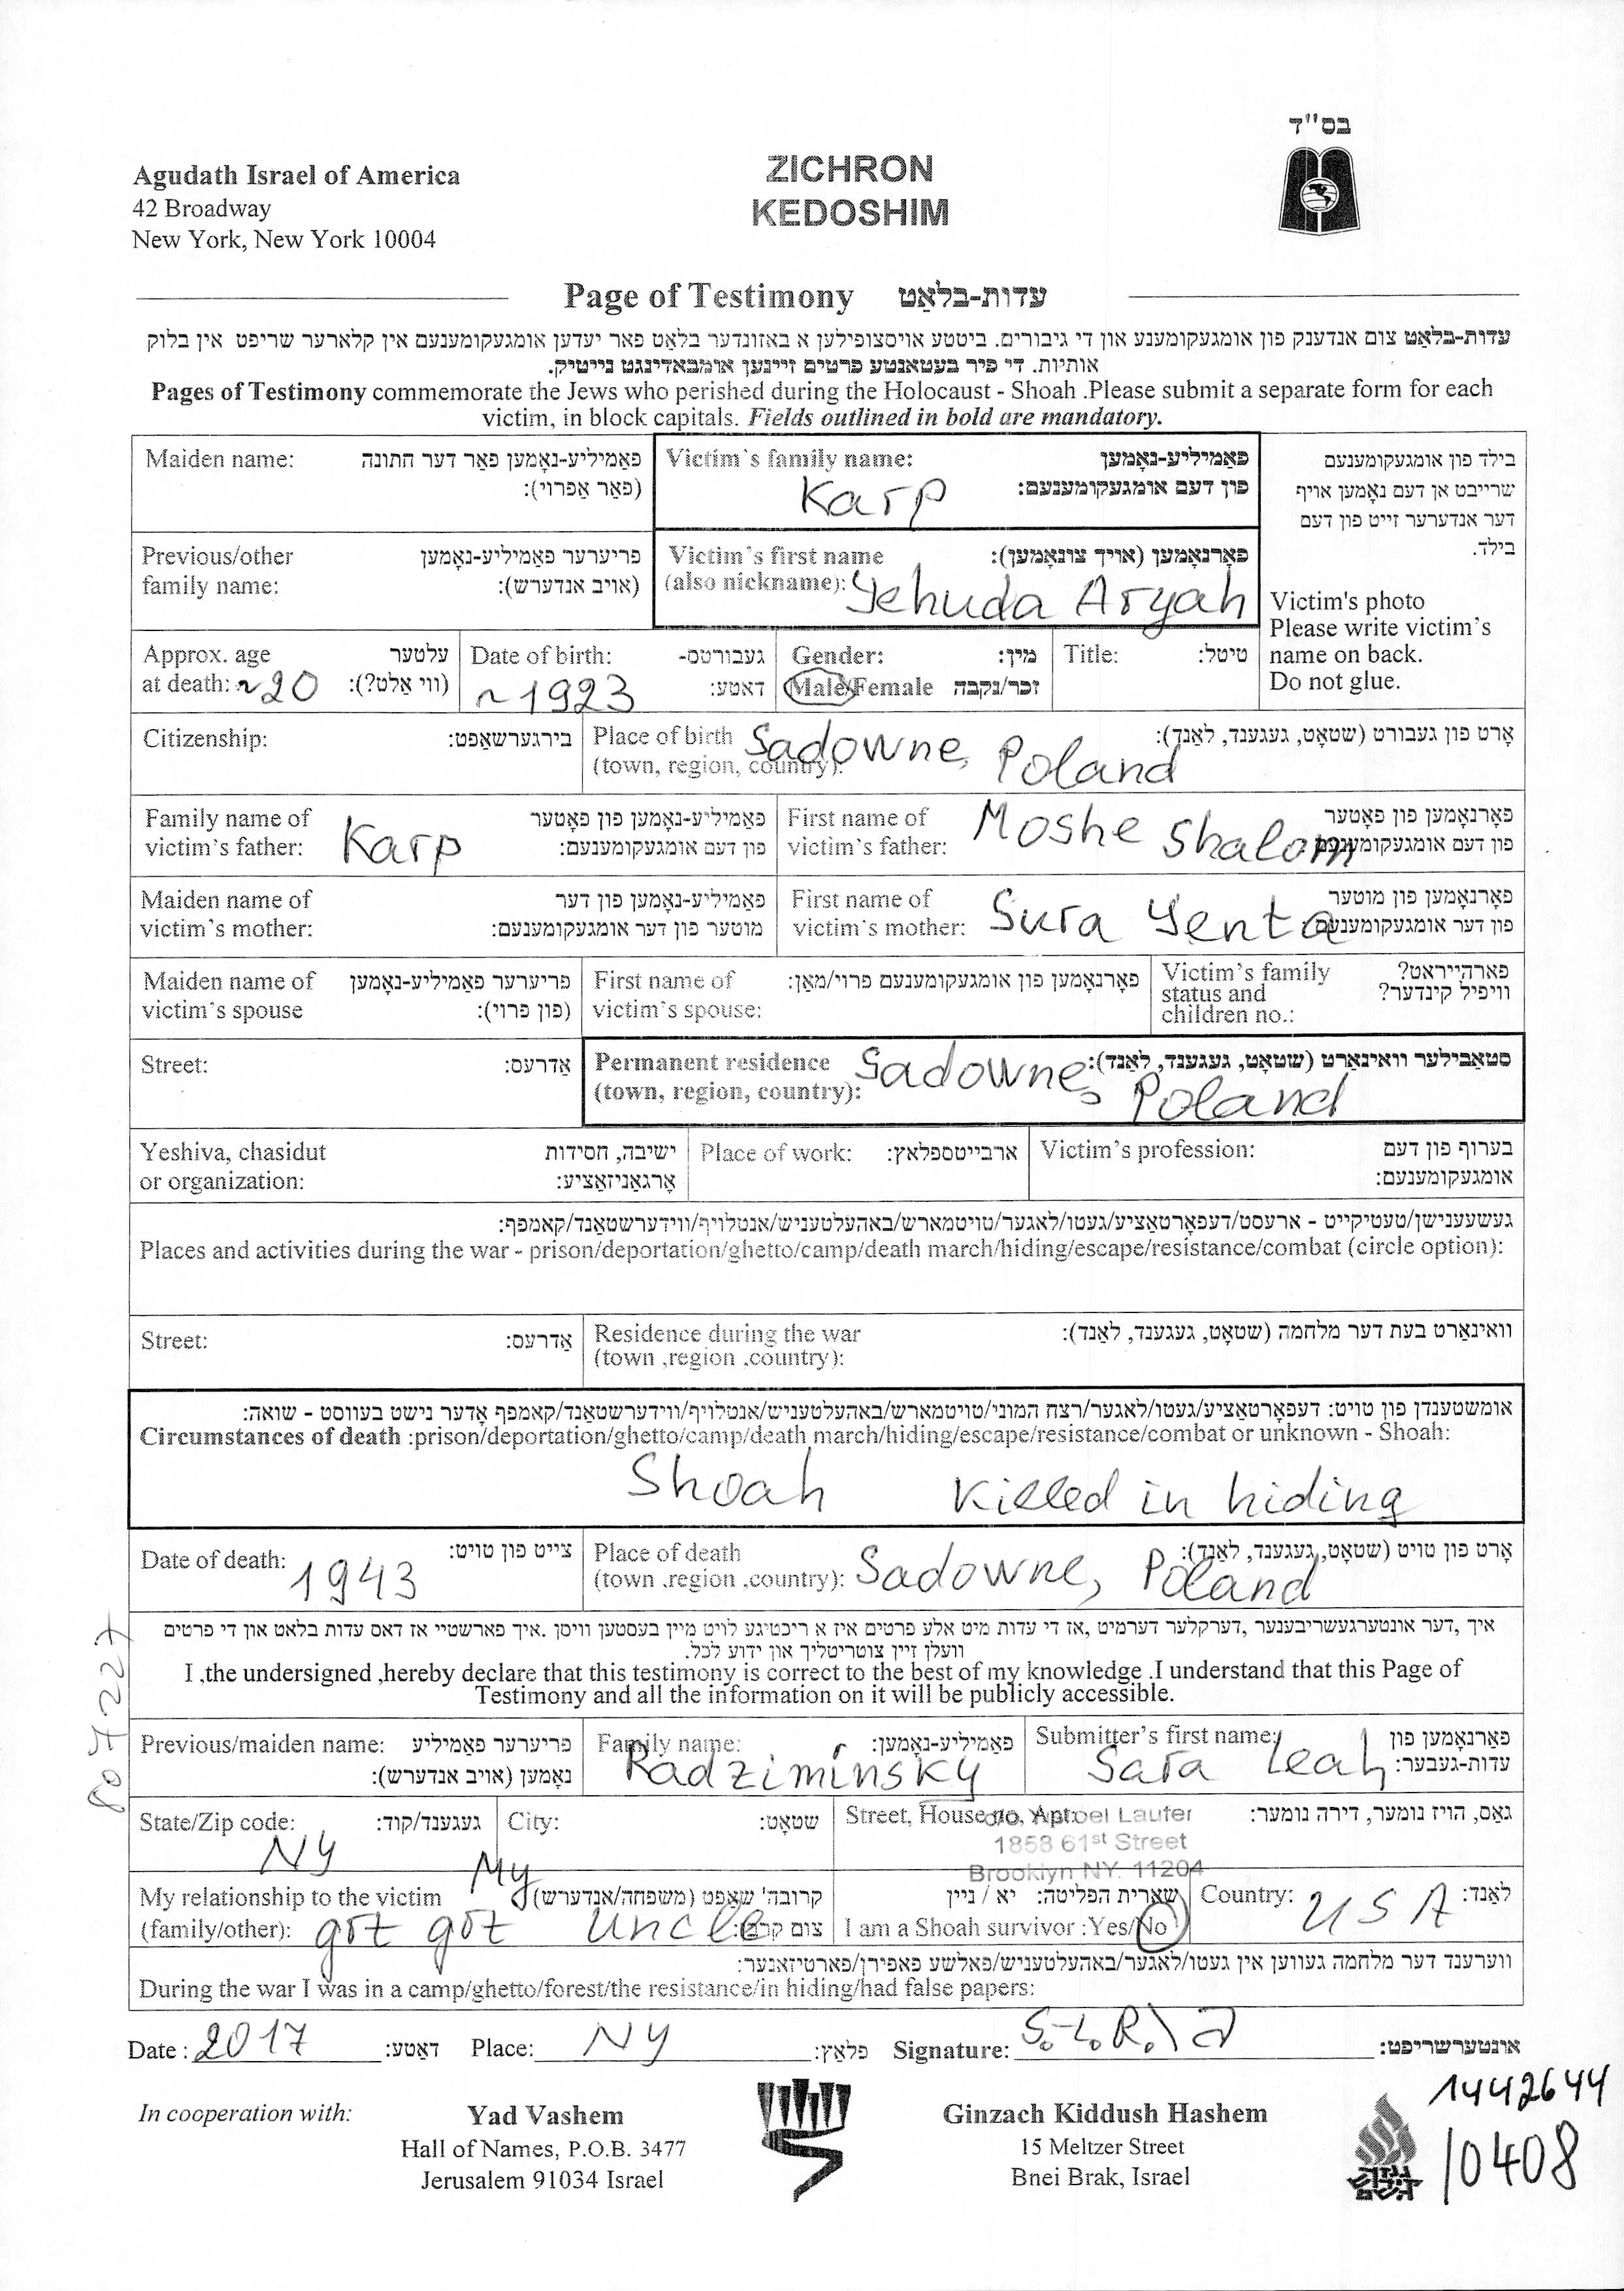 בס"ד
Agudath Israel of America
42 Broadway
New York, New York 10004
ZICHRON
KEDOSHIM
Page of Testimony עדות-בלאַט
עדות-בלאַט צום אנדענק פון אומגעקומענע און די גיבורים. ביטטע אויסצופילען א באזונדער בלאט פאר יעדען אומגעקומענעם אין קלארער שריפט אין בלוק
אותיות. די פיר בעטאנטע פרטים זיינען אומבאדינגט נייטיק.
Pages of Testimony commemorate the Jews who perished during the Holocaust - Shoah .Please submit a separate form for each
victim, in block capitals. Fields outlined in bold are mandatory.
Maiden name: פאַמיליע-נאָמען פאר דער חתונה
(פאר אַפרוי):
Victim's family name: פאַמיליע-נאָמען
פון דעם אומגעקומענעם:
Karp
בילד פון אומגעקומענעם
שרייבט אן דעם נאָמען אויף
דער אנדערער זייט פון דעם
בילד.
Previous/other פריערער פאַמיליע-נאָמען
family name: (אויב אנדערש):
Victim's first name פאָרנאָמען (אויך צונאָמען):
(also nickname): Yehuda Aryah
Victim's photo
Please write victim's
name on back.
Do not glue.
Approx. age עלטער
at death: ~20 (ווי אלט?):
Date of birth: געבורטס-
~1923 דאַטע:
Gender: מין:
Male/Female זכר/נקבה
Title: טיטל:
Citizenship: בירגערשאַפט:
Place of birth אָרט פון געבורט (שטאָט, געגענד, לאַנד):
(town, region, country): Sadowne, Poland
Family name of פאַמיליע-נאָמען פון פאָטער
victim's father: Karp פון דעם אומגעקומענעם:
First name of פאָרנאָמען פון פאָטער
victim's father: Moshe Shalom פון דעם אומגעקומענעם
Maiden name of פאַמיליע-נאָמען פון דער
victim's mother: מוטער פון דער אומגעקומענעם:
First name of פאָרנאָמען פון מוטער
victim's mother: Sura Yenta פון דער אומגעקומענעם
Maiden name of פריערער פאַמיליע-נאָמען
victim's spouse (פון פרוי):
First name of פאָרנאָמען פון אומגעקומענעם פרוי/מאַן:
victim's spouse:
Victim's family פארהייראט?
status and וויפיל קינדער?
children no.:
Street: אַדרעס:
Permanent residence סטאַבילער וואוינאָרט (שטאָט, געגענד, לאַנד):
(town, region, country): Sadowne, Poland
Yeshiva, chasidut ישיבה, חסידות
or organization: אָרגאַניזאַציע:
Place of work: ארבייטספלאץ:
Victim's profession: בערוף פון דעם
אומגעקומענעם:
געשעענישן/טעטיקייט - ארעסט/דעפאָרטאַציע/געטו/לאגער/טויטמארש/באהעלטעניש/אנטלויף/ווידערשטאַנד/קאמפף:
Places and activities during the war - prison/deportation/ghetto/camp/death march/hiding/escape/resistance/combat (circle option):
Street: אַדרעס:
Residence during the war וואוינאָרט בעת דער מלחמה (שטאָט, געגענד, לאַנד):
(town ,region ,country):
אומשטענדן פון טויט: דעפאָרטאַציע/געטו/לאגער/רצח המוני/טויטמארש/באהעלטעניש/אנטלויף/ווידערשטאַנד/קאמפף אָדער נישט בעוואוסט - שואה:
Circumstances of death :prison/deportation/ghetto/camp/death march/hiding/escape/resistance/combat or unknown - Shoah:
Shoah Killed in hiding
Date of death: 1943 צייט פון טויט:
Place of death אָרט פון טויט (שטאָט, געגענד, לאַנד):
(town ,region ,country): Sadowne, Poland
איך ,דער אונטערגעשריבענער ,דערקלער דערמיט ,אז די עדות מיט אלע פרטים איז א ריכטיגע לויט מיין בעסטען וויסן .איך פארשטיי אז דאס עדות בלאט און די פרטים
וועלן זיין צוטריטליך און ידוע לכל.
I ,the undersigned ,hereby declare that this testimony is correct to the best of my knowledge .I understand that this Page of
Testimony and all the information on it will be publicly accessible.
807227
Previous/maiden name: פריערער פאַמיליע
נאָמען (אויב אנדערש):
Family name: פאַמיליע-נאָמען:
Radziminsky
Submitter's first name: פאָרנאָמען פון
Sara Leah עדות-געבער:
State/Zip code: געגענד/קוד:
NY
City: שטאָט:
NY
Street, House no, Apt: גאס, הויז נומער, דירה נומער:
c/o Yisroel Laufer
1858 61st Street
Brooklyn NY. 11204
My relationship to the victim קרובה'שאפט (משפחה/אנדערש)
(family/other): My grt grt uncle
שארית הפליטה: יא / ניין
I am a Shoah survivor :Yes/No
Country: USA לאַנד:
ווערענד דער מלחמה געווען אין געטו/לאגער/באהעלטעניש/פאלשע פאפירן/פארטיזאנער:
During the war I was in a camp/ghetto/forest/the resistance/in hiding/had false papers:
Date : 2017 דאַטע: Place: NY פלאץ: Signature: אונטערשריפט:
1442644
/0408
In cooperation with:
Yad Vashem
Hall of Names, P.O.B. 3477
Jerusalem 91034 Israel
Ginzach Kiddush Hashem
15 Meltzer Street
Bnei Brak, Israel